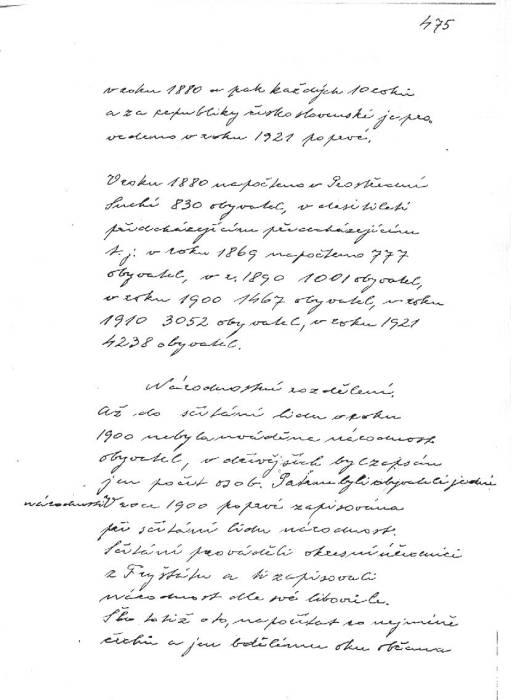 475
v roku 1880 a pak každých 10 roků
a za republiky československé je pro
vedeno v roku 1921 poprvé.
V roku 1880 napočteno v Prostřední
Suché 830 obyvatel, v desítiletí
předcházejícímu předcházejícímu
t.j. v roku 1869 napočteno 777
obyvatel, v r. 1890 1001 obyvatel,
v roku 1900 1467 obyvatel, v roku
1910 3052 obyvatel, v roku 1921
4238 obyvatel.
Národnostní rozdělení.
Až do sčítání lidu v roku
1900 nebyla uváděna národnost
obyvatel, v dřívějších byl zapsán
jen počet osob. byli obyvatelé jedné
národnosti V roce 1900 poprvé zapisována
při sčítání lidu národnost.
Sčítání prováděli okresní úředníci
z Fryštátu a ti zapisovali
národnost dle své libovůle.
Šlo totiž o to, napočítat co nejméně
čechů a jen bdělému oku občana